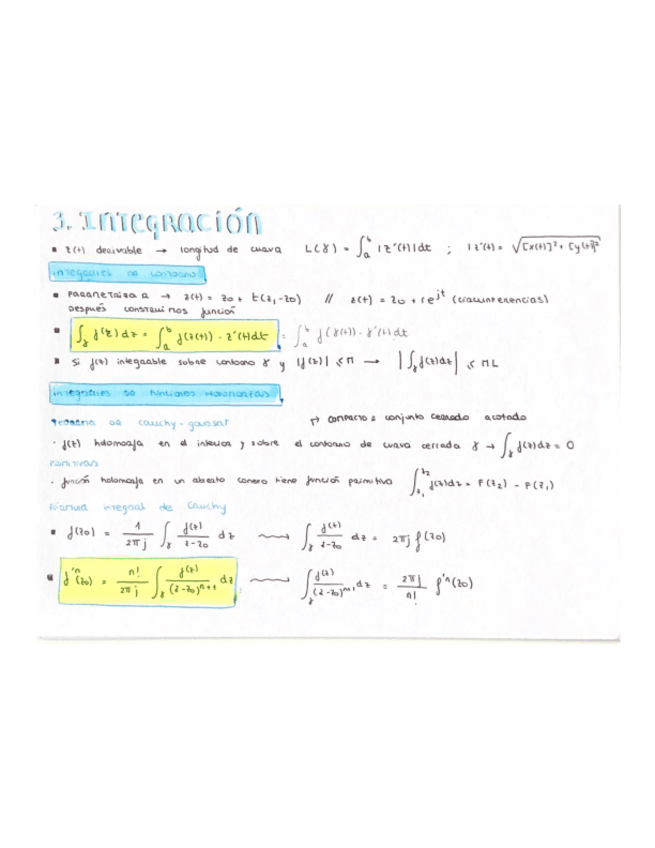 3. Integración
▪ z(t) derivable → longitud de curva L(γ) = ∫_a^b |z'(t)|dt ; |z'(t)| = √([x(t)]² + [y(t)]²
integrales de contorno
▪ parametrizar → z(t) = z₀ + t(z₁-z₀) // z(t) = z₀ + re^{jt} (circunferencias)
después construimos función
▪ ∫_γ f(z) dz = ∫_a^b f(z(t)) · z'(t)dt = ∫_a^b f(γ(t)) · γ'(t) dt
▪ Si f(z) integrable sobre contorno γ y |f(z)| ≤ M → |∫_γ f(z)dz| ≤ ML
integrales de funciones holomorfas
Teorema de Cauchy-Goursat ↱ compacto = conjunto cerrado acotado
· f(z) holomorfa en el interior y sobre el contorno de curva cerrada γ → ∫_γ f(z)dz = 0
primitivas
· función holomorfa en un abierto conexo tiene función primitiva ∫_{z₁}^{z₂} f(z)dz = F(z₂) - F(z₁)
Fórmula integral de Cauchy
▪ f(z₀) = 1/2πj ∫_γ f(z)/z-z₀ dz ⟿ ∫_γ f(z)/z-z₀ dz = 2πj f(z₀)
▪ f'ⁿ(z₀) = n!/2πj ∫_γ f(z)/(z-z₀)^{n+1} dz ⟿ ∫_γ f(z)/(z-z₀)^{n+1} dz = 2πj/n! f'ⁿ(z₀)